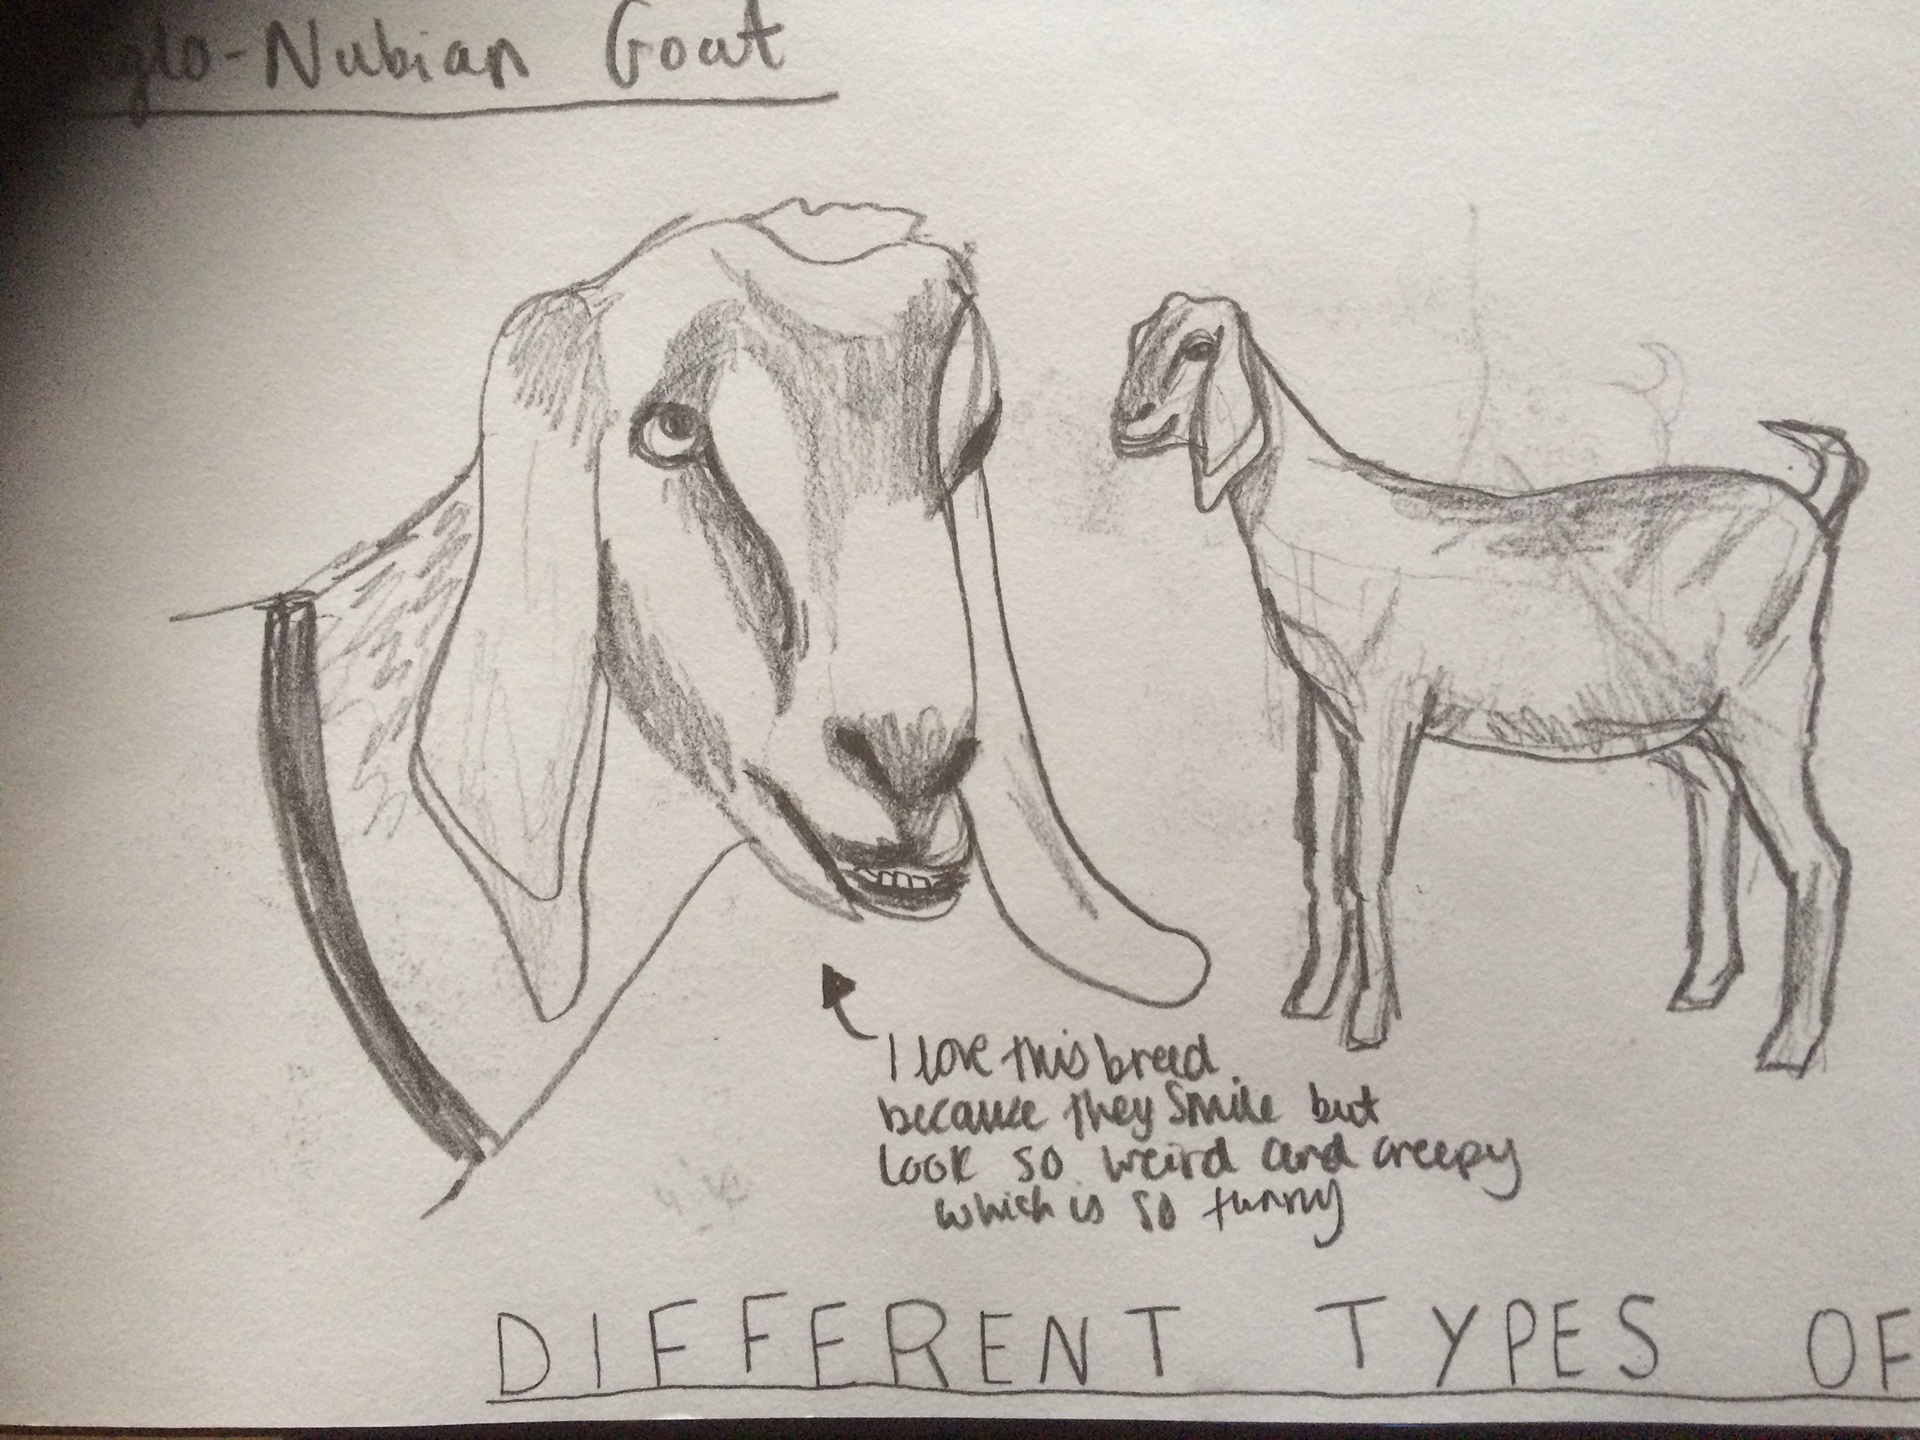 glo-Nubian Goat
I love this breed
because they smile but
look so weird and creepy
which is so funny
DIFFERENT TYPES OF